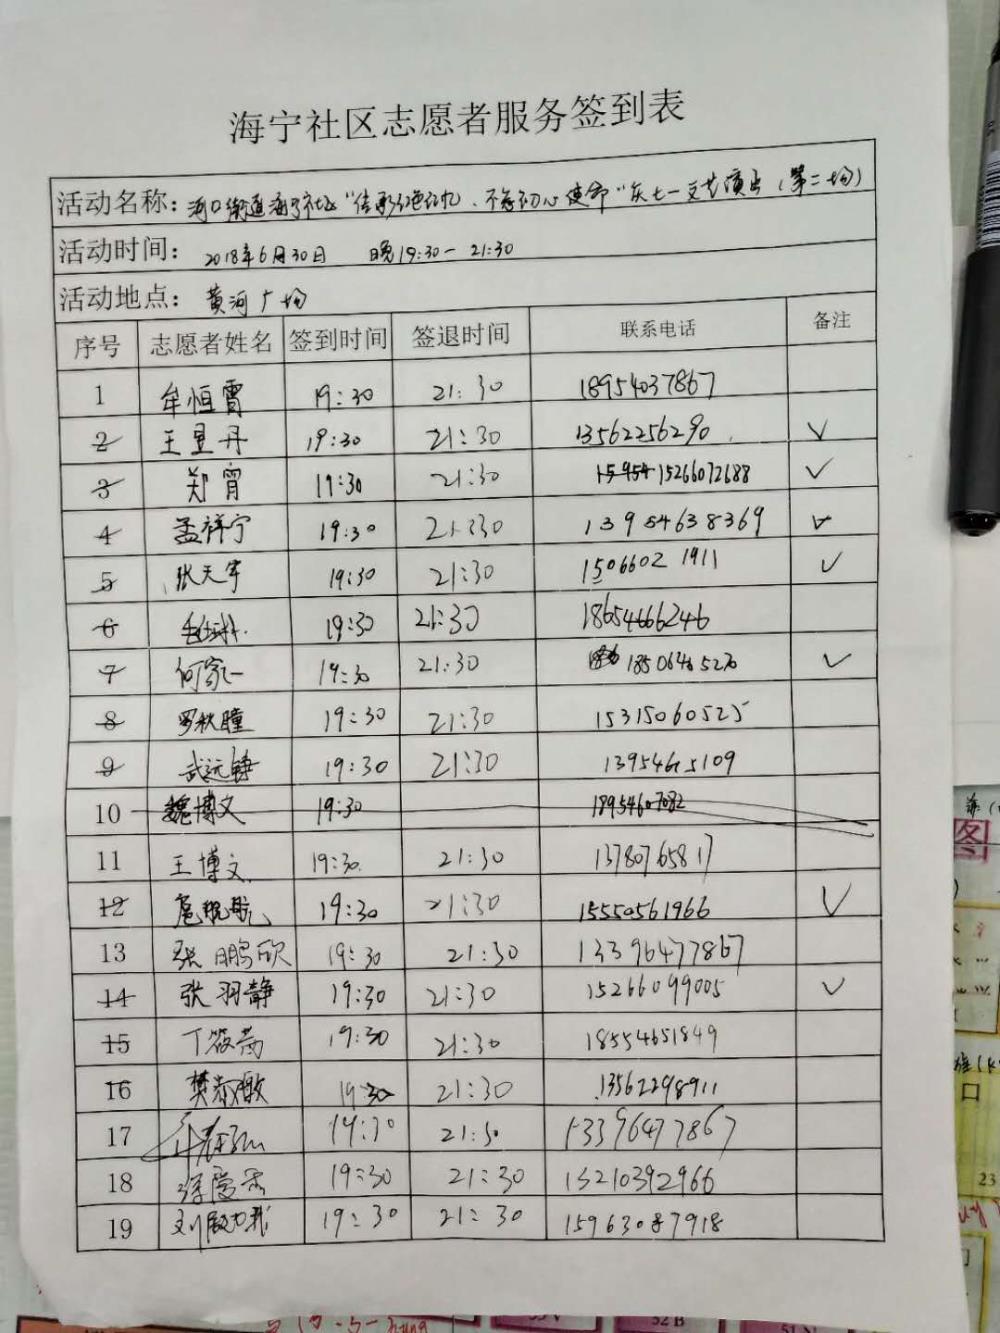 海宁社区志愿者服务签到表
活动名称：海口街道海宁社区“传承红色记忆、不忘初心使命”庆七一文艺演出（第二场）
活动时间：2018年6月30日 晚19:30-21:30
活动地点：黄河广场
序号 志愿者姓名 签到时间 签退时间 联系电话 备注
1 牟恒霄 19:30 21:30 18954037867
2 王昱丹 19:30 21:30 13562256290 √
3 郑宵 19:30 21:30 15266072688 √
4 孟祥宁 19:30 21:30 13954638369 √
5 张天宇 19:30 21:30 15066021911 √
6 19:30 21:30 18654666246
7 何家一 19:30 21:30 √
8 罗秋瞳 19:30 21:30 15315060525
9 武远锋 19:30 21:30 13954615109
10 魏博文 19:30 18954607082
11 王博文 19:30 21:30
12 19:30 21:30 15550561966 √
13 张鹏欣 19:30 21:30 13396477867
14 张羽静 19:30 21:30 15266099005 √
15 丁筱芮 19:30 21:30 18554651849
16 19:30 21:30 13562298911
17 19:30 21:30 13396477867
18 19:30 21:30 15210392966
19 19:30 21:30 15963087918
图
口
23
52 B